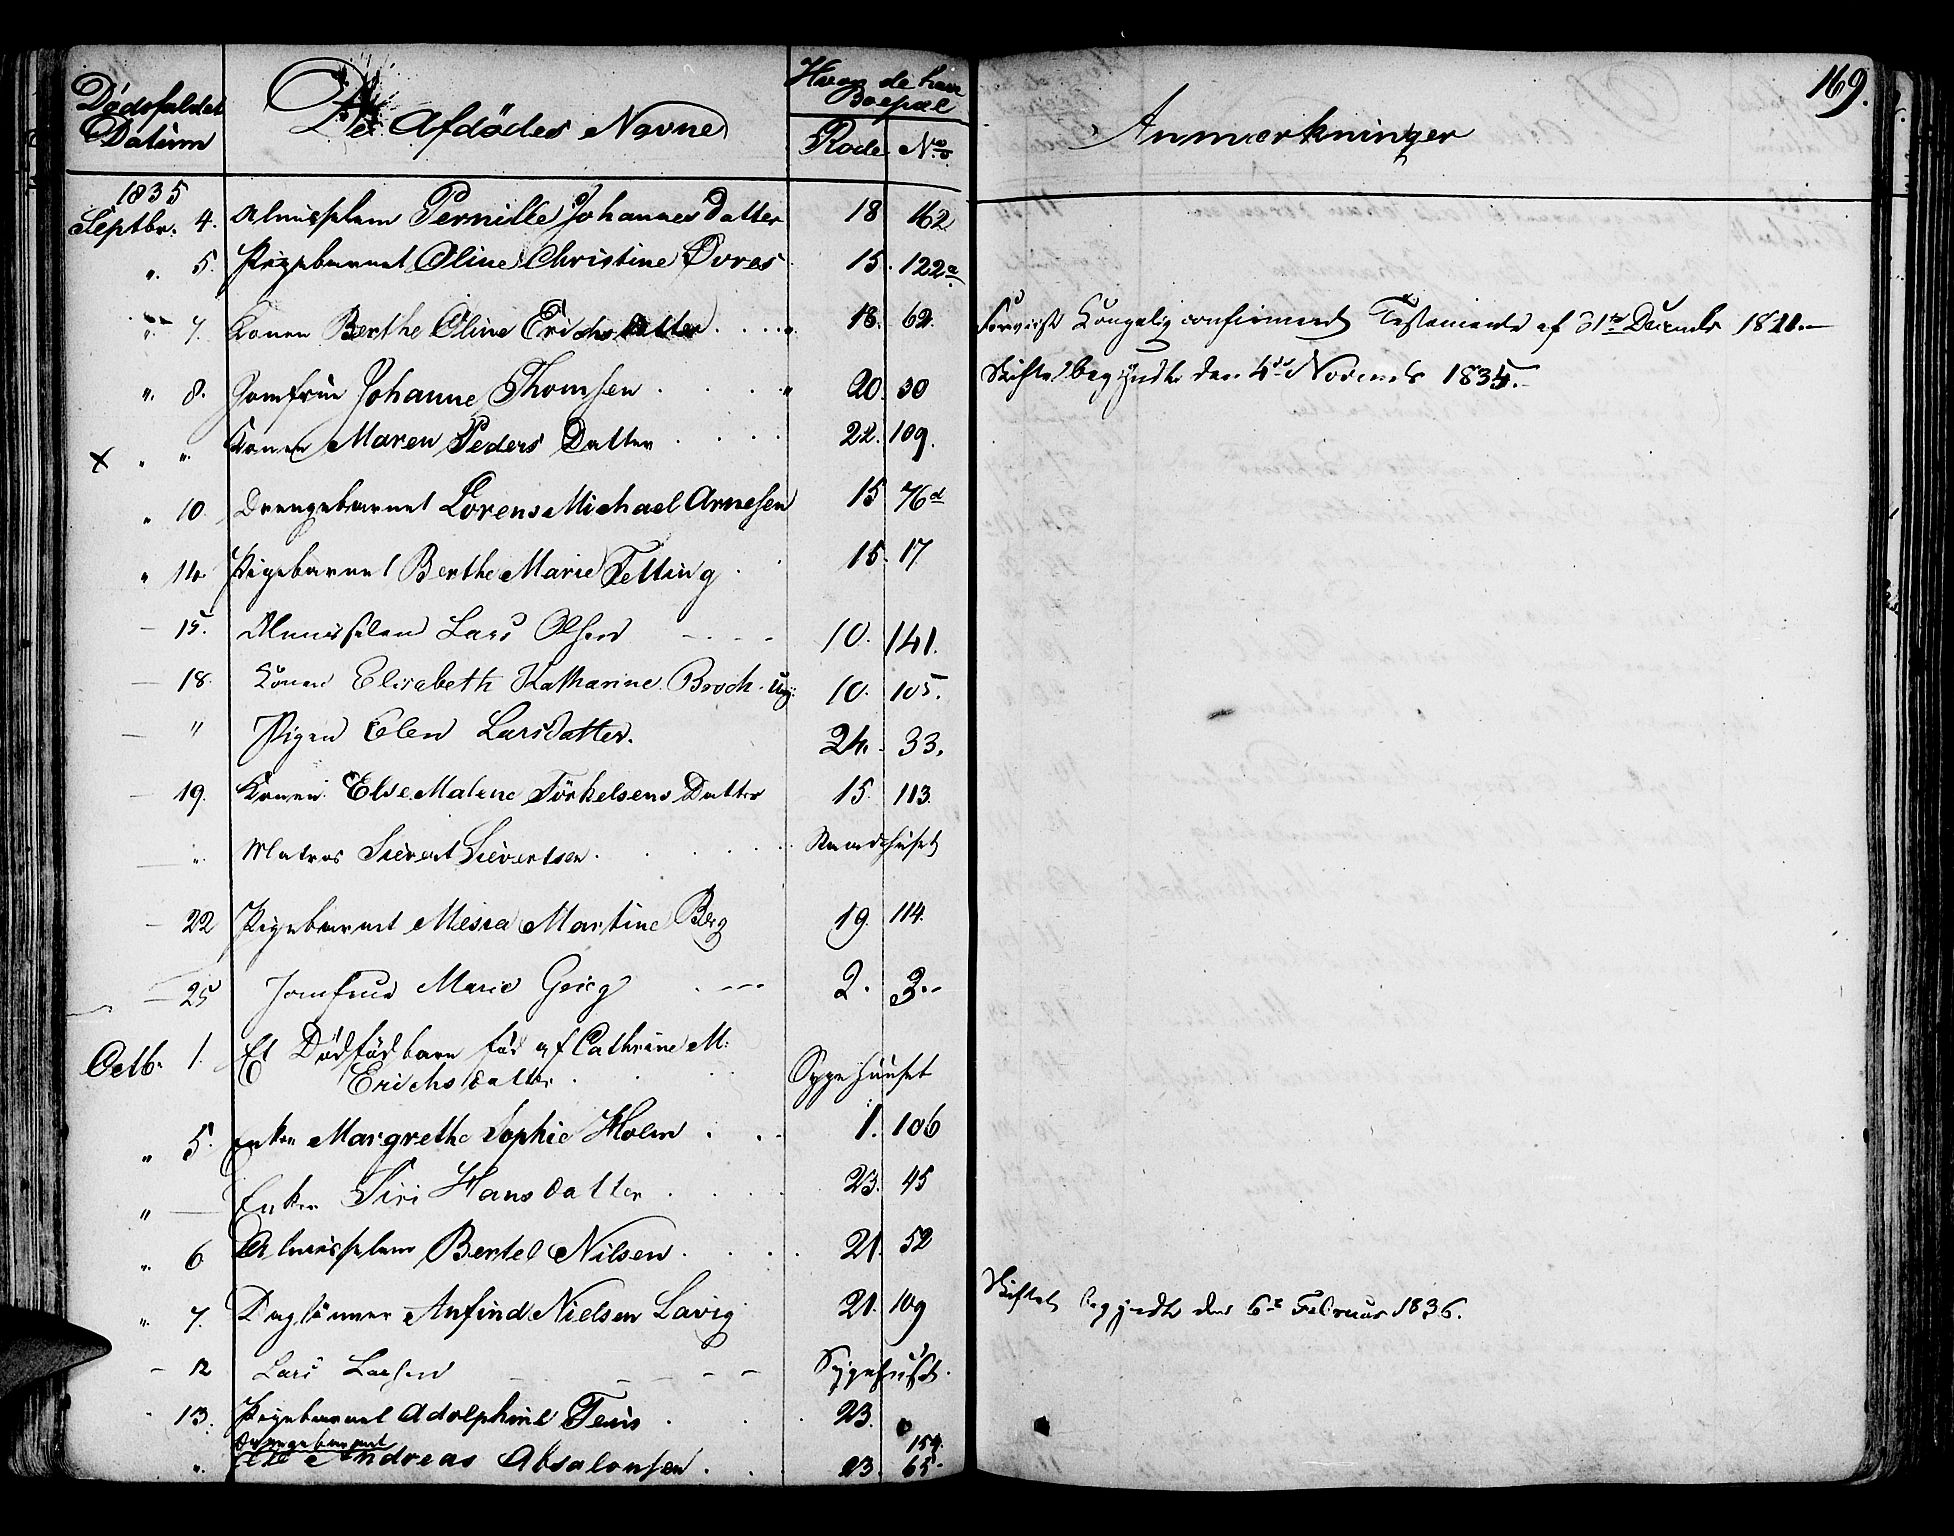 169.
Dødsfaldet Datum
De Afdødes Navne
Hvor de have Boepæl
Rode No.
Anmærkninger
1835
Septbr. 4. Almisselem Pernille Johannes Datter 18 162
" 5. Pigebarnet Oline Christine Øvres 15. 122a
" 7. Konen Berthe Oline Erichsdatter 18. 62. Kongelig confirmered Testamente af 31te Decembr 18
" 8. Jomfrue Johanne Thomsen 20. 30 Skiftet begyndte den 4de Novembr 1835.
x " " Konen Maren Peders Datter 22. 109.
" 10. Drengebarnet Lorens Michael Arnesen 15 76d
" 14. Pigebarnet Berthe Marie Telling 15. 17
— 15. Almisselem Lars Olsen 10. 141.
— 18. Konen Elisabeth Katharine Broch 10. 105.
— " Pigen Elen Larsdatter. 24. 33.
— 19. Konen Else Malene Törkelsens Datter 15. 113.
— " Matros Sievert Sievertsen. Raadhuset
— 22 Pigebarnet Mesia Martine Berg 19. 114.
— 25 Jomfrue Marie Grieg 2. 3.
Octb. 1. Et Dødfød barn fød af Cathrine M:
Erichsdatter Sygehuuset
" 5. Enken Margrethe Sophie Holm 1. 106
" — Enken Siri Hansdatter 23. 45
" 6 Almisselem Bertel Nilsen. 21. 52
" 7. Daglönner Anfind Nielsen Lavig 21. 109 Skiftet begyndte den 6te Februar 1836.
— 12 Lars Larsen Sygehuset.
13. Pigebarnet Adolphine Tens 23.
Drengebarnet 154.
" Ole Andreas Absalonsen 23. 65